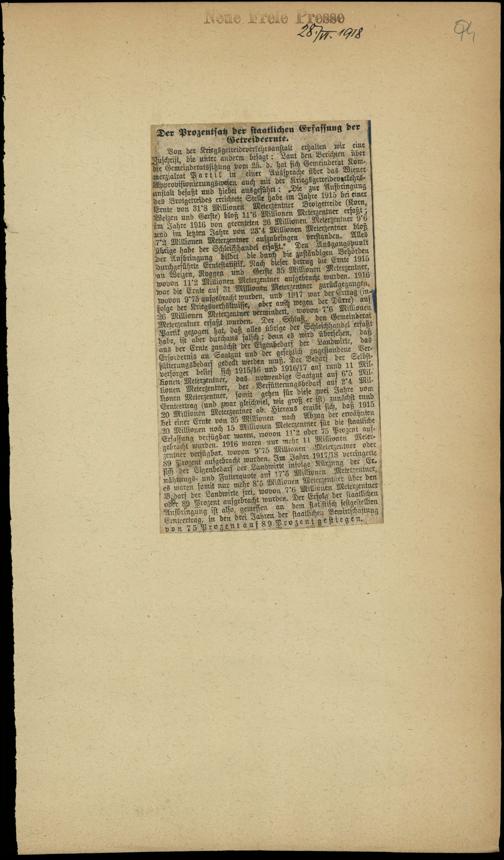 Neue Freie Presse
28./VI. 1918
94
Der Prozentsatz der staatlichen Erfassung der
Getreideernte.
Von der Kriegsgetreideverkehrsanstalt erhalten wir eine
Zuschrift, die unter anderm besagt: Laut den Berichten über
die Gemeinderatssitzung vom 25. d. hat sich Gemeinderat Kom-
merzialrat Partik in einer Aussprache über das Wiener
Approvisionierungswesen auch mit der Kriegsgetreideverkehrs-
anstalt befaßt und hiebei ausgeführt: „Die zur Aufbringung
des Brotgetreides errichtete Stelle habe im Jahre 1915 bei einer
Ernte von 31˙8 Millionen Meterzentner Brotgetreide (Korn,
Weizen und Gerste) bloß 11˙6 Millionen Meterzentner erfaßt;
im Jahre 1916 von geernteten 26 Millionen Meterzentner 9˙6
und im letzten Jahre von 23˙4 Millionen Meterzentner bloß
7˙2 Millionen Meterzentner aufzubringen verstanden. Alles
übrige habe der Schleichhandel erfaßt.“ Den Ausgangspunkt
der Aufbringung bildet die durch die zuständigen Behörden
durchgeführte Erntestatistik. Nach dieser betrug die Ernte 1915
an Weizen, Roggen und Gerste 35 Millionen Meterzentner,
wovon 11˙2 Millionen Meterzentner aufgebracht wurden. 1916
war die Ernte auf 31 Millionen Meterzentner zurückgegangen,
wovon 9˙75 aufgebracht wurden, und 1917 war der Ertrag (in-
folge der Kriegsverhältnisse, aber auch wegen der Dürre) auf
26 Millionen Meterzentner vermindert, wovon 7˙6 Millionen
Meterzentner erfaßt wurden. Der Schluß, den Gemeinderat
Partik gezogen hat, daß alles übrige der Schleichhandel erfaßt
habe, ist aber durchaus falsch; denn es wird übersehen, daß
aus der Ernte zunächst der Eigenbedarf der Landwirte, das
Erfordernis an Saatgut und der gesetzlich zugestandene Ver-
fütterungsbedarf gedeckt werden muß. Der Bedarf der Selbst-
versorger belief sich 1915/16 und 1916/17 auf rund 11 Mil-
lionen Meterzentner, das notwendige Saatgut auf 6˙5 Mil-
lionen Meterzentner, der Verfütterungsbedarf auf 2˙4 Mil-
lionen Meterzentner, somit gehen für diese zwei Jahre vom
Ernteertrag (und zwar gleichviel, wie groß er ist) zunächst rund
20 Millionen Meterzentner ab. Hieraus ergibt sich, daß 1915
bei einer Ernte von 35 Millionen nach Abzug der erwähnten
20 Millionen noch 15 Millionen Meterzentner für die staatliche
Erfassung verfügbar waren, wovon 11˙2 oder 75 Prozent auf-
gebracht wurden. 1916 waren nur mehr 11 Millionen Meter-
zentner verfügbar, wovon 9˙75 Millionen Meterzentner oder
89 Prozent aufgebracht wurden. Im Jahre 1917/18 verringerte
sich der Eigenbedarf der Landwirte infolge Kürzung der Er-
nährungs- und Futterquote auf 17˙5 Millionen Meterzentner,
es waren somit nur mehr 8˙5 Millionen Meterzentner über den
Bedarf der Landwirte frei, wovon 7˙6 Millionen Meterzentner
oder 89 Prozent aufgebracht wurden. Der Erfolg der staatlichen
Aufbringung ist also, gemessen an dem statistisch festgestellten
Ernteertrag, in den drei Jahren der staatlichen Bewirtschaftung
von 75 Prozent auf 89 Prozent gestiegen.